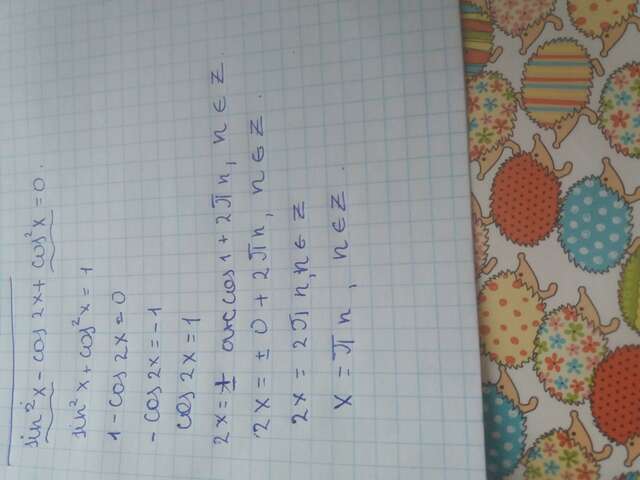 sin²x - cos2x + cos²x = 0.
sin²x + cos²x = 1
1 - cos2x = 0
- cos2x = -1
cos2x = 1
2x = ± arccos1 + 2πn, n ∈ Z.
2x = ± 0 + 2πn, n ∈ Z.
2x = 2πn, n ∈ Z
x = πn, n ∈ Z.